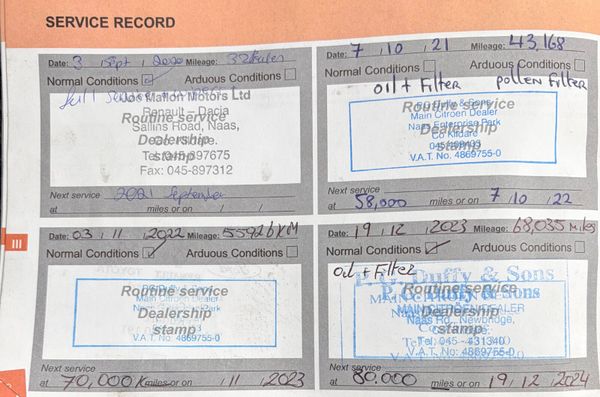 SERVICE RECORD
Date: 3 Sept 2020 Mileage:
Normal Conditions Arduous Conditions
full service
Joe Mallon Motors Ltd
Renault – Dacia
Routine service
Sallins Road, Naas,
Dealership
Co. Kildare.
stamp
Tel: 045-897675
Fax: 045-897312
Next service
2021 September
at miles or on / /
Date: 7 / 10 / 21 Mileage: 43,168
Normal Conditions Arduous Conditions
oil + Filter pollen Filter
P.C. Duffy & Sons
Routine service
Main Citroen Dealer
Naas Enterprise Park
Dealership
Co Kildare
stamp
V.A.T. No. 4869755-0
Next service
at 58,000 miles or on 7 / 10 / 22
III
Date: 03 / 11 / 2022 Mileage: 55926 KM
Normal Conditions Arduous Conditions
Routine service
Main Citroen Dealer
Dealership
stamp
V.A.T. No. 4869755-0
Next service
at 70,000 K miles or on / 11 / 2023
Date: 19 / 12 / 2023 Mileage: 68,035 Miles
Normal Conditions Arduous Conditions
Oil + Filter
P.C. Duffy & Sons
Routine service
MAIN CITROEN DEALER
Dealership
Naas Rd., Newbridge,
stamp
Tel: 045 - 431340
V.A.T. No: 4869755-0
Next service
at 80.000 miles or on 19 / 12 / 2024